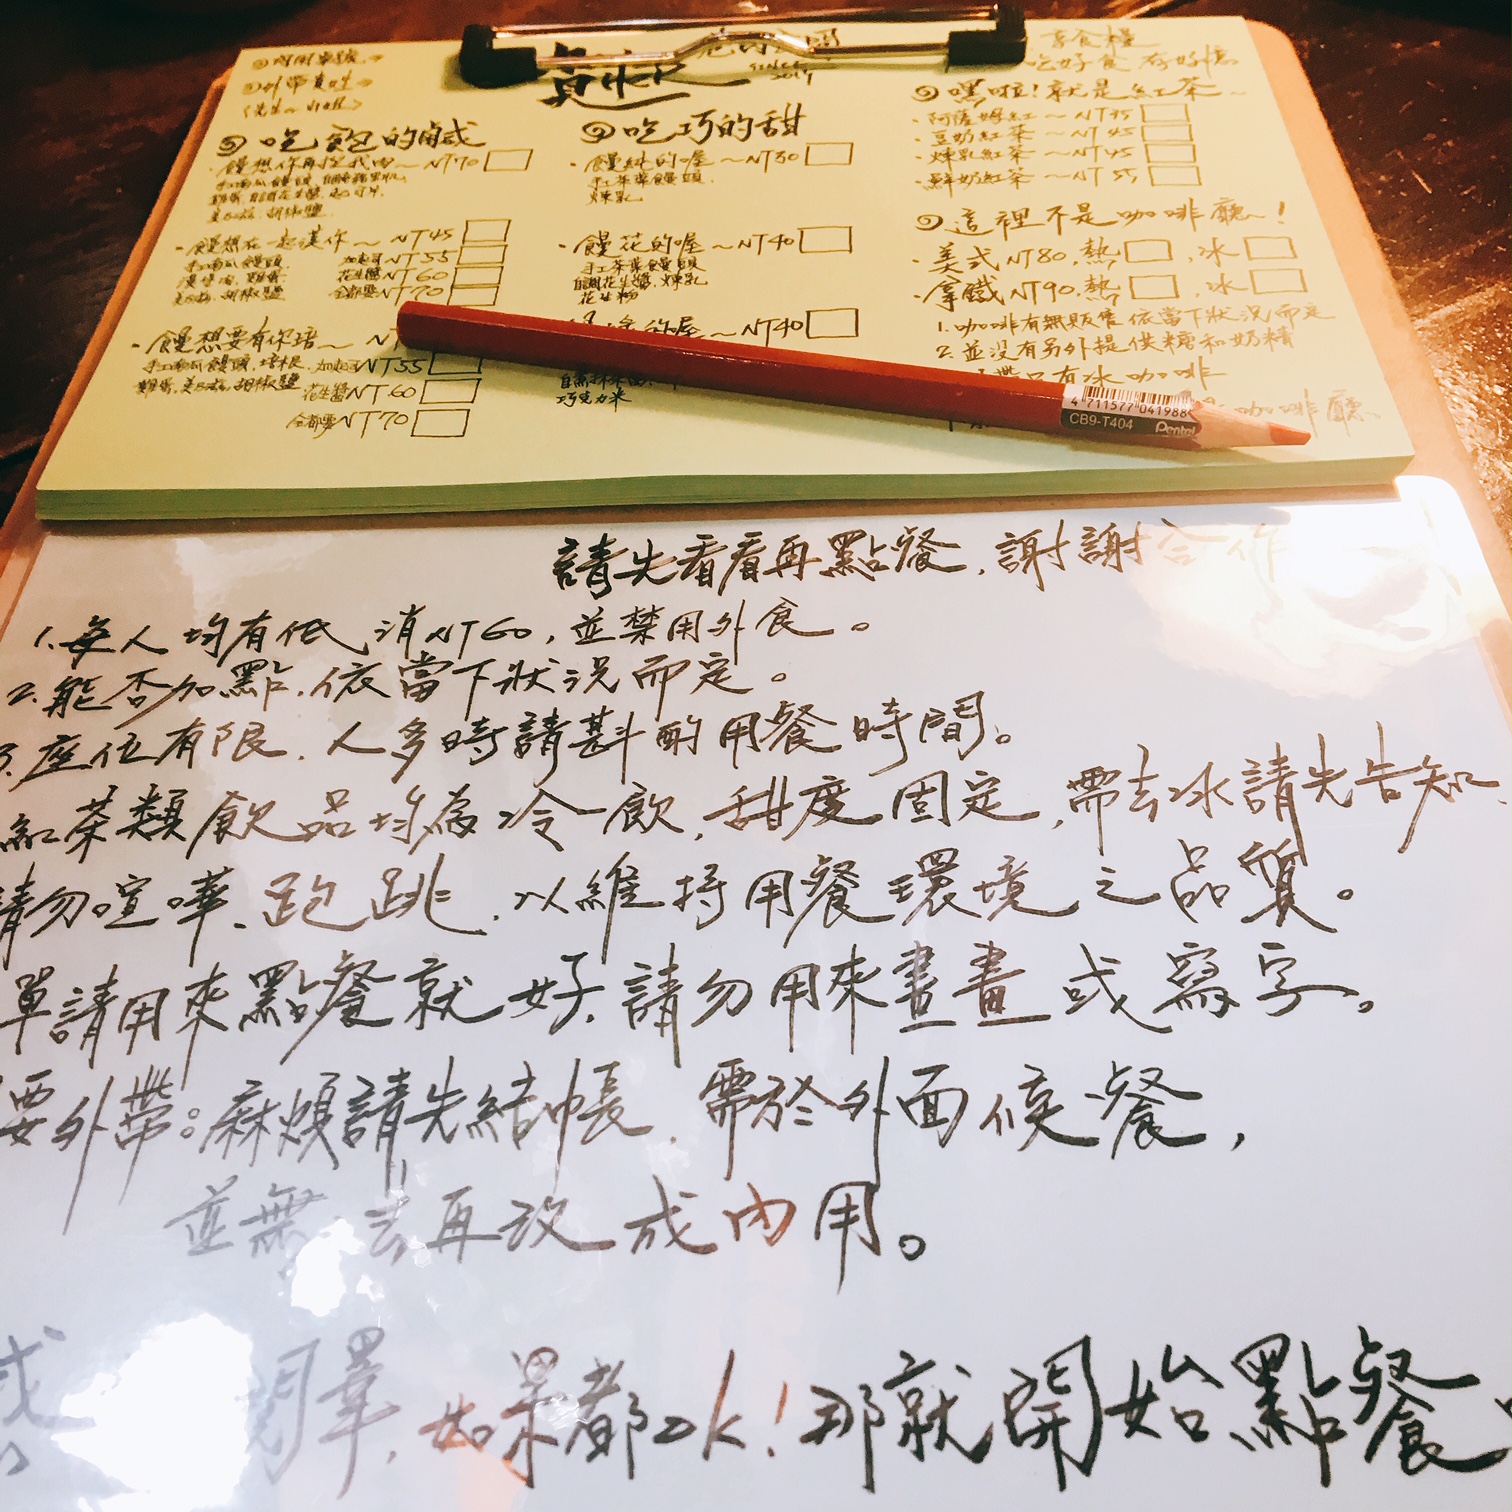 外帶貴姓
享食糧
吃好食 存好憶
吃飽的鹹
NT70
手工南瓜饅頭
胡椒鹽
饅想在一起漢你～NT45
手工南瓜饅頭 NT55
花生醬 NT60
全都要 NT70
饅想要有你培～
手工南瓜饅頭、培根、 NT55
胡椒鹽 花生醬 NT60
全都要 NT70
吃巧的甜
饅純的喔～NT30
手工茶葉饅頭
煉乳
饅花的喔～NT40
手工茶葉饅頭
自調花生醬、煉乳
花生粉
的喔～NT40
巧克力米
嘿啦！就是紅茶～
阿薩姆紅～NT35
豆奶紅茶～NT45
煉乳紅茶～NT45
鮮奶紅茶～NT55
這裡不是咖啡廳～！
美式NT80.熱 ,冰
拿鐵NT90.熱 ,冰
1.咖啡有無販售依當下狀況而定
2.並沒有另外提供糖和奶精
只有冰咖啡
咖啡廳
4711577041988
CB9-T404 Pentel
請先看看再點餐,謝謝合作
1.每人均有低消NT60,並禁用外食。
2.能否加點,依當下狀況而定。
3.座位有限,人多時請斟酌用餐時間。
紅茶類飲品均為冷飲,甜度固定,需去冰請先告知
請勿喧嘩、跑跳,以維持用餐環境之品質。
單請用來點餐就好,請勿用來畫畫或寫字。
要外帶:麻煩請先結帳,需於外面候餐,
並無法再改成內用。
如果都OK!那就開始點餐